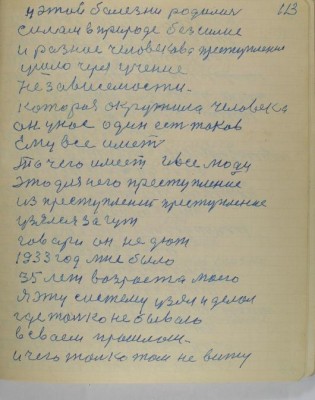 113
у этой болезни родилися
силам в природе бессилие
и разные человекова преступления
ушло через учение
Независемости.
которая окружила человека
он у нас один естьтаков
Ему все имеет
То чего имеет и все люди
это для него преступление
из преступлений преступление
узялся за гуж
говари он не дюж
1933 год мне было
35 лет возроста моего
я эту систему узял и делал
где только не бывало
в сваем прошлом.
и чего только там не вижу